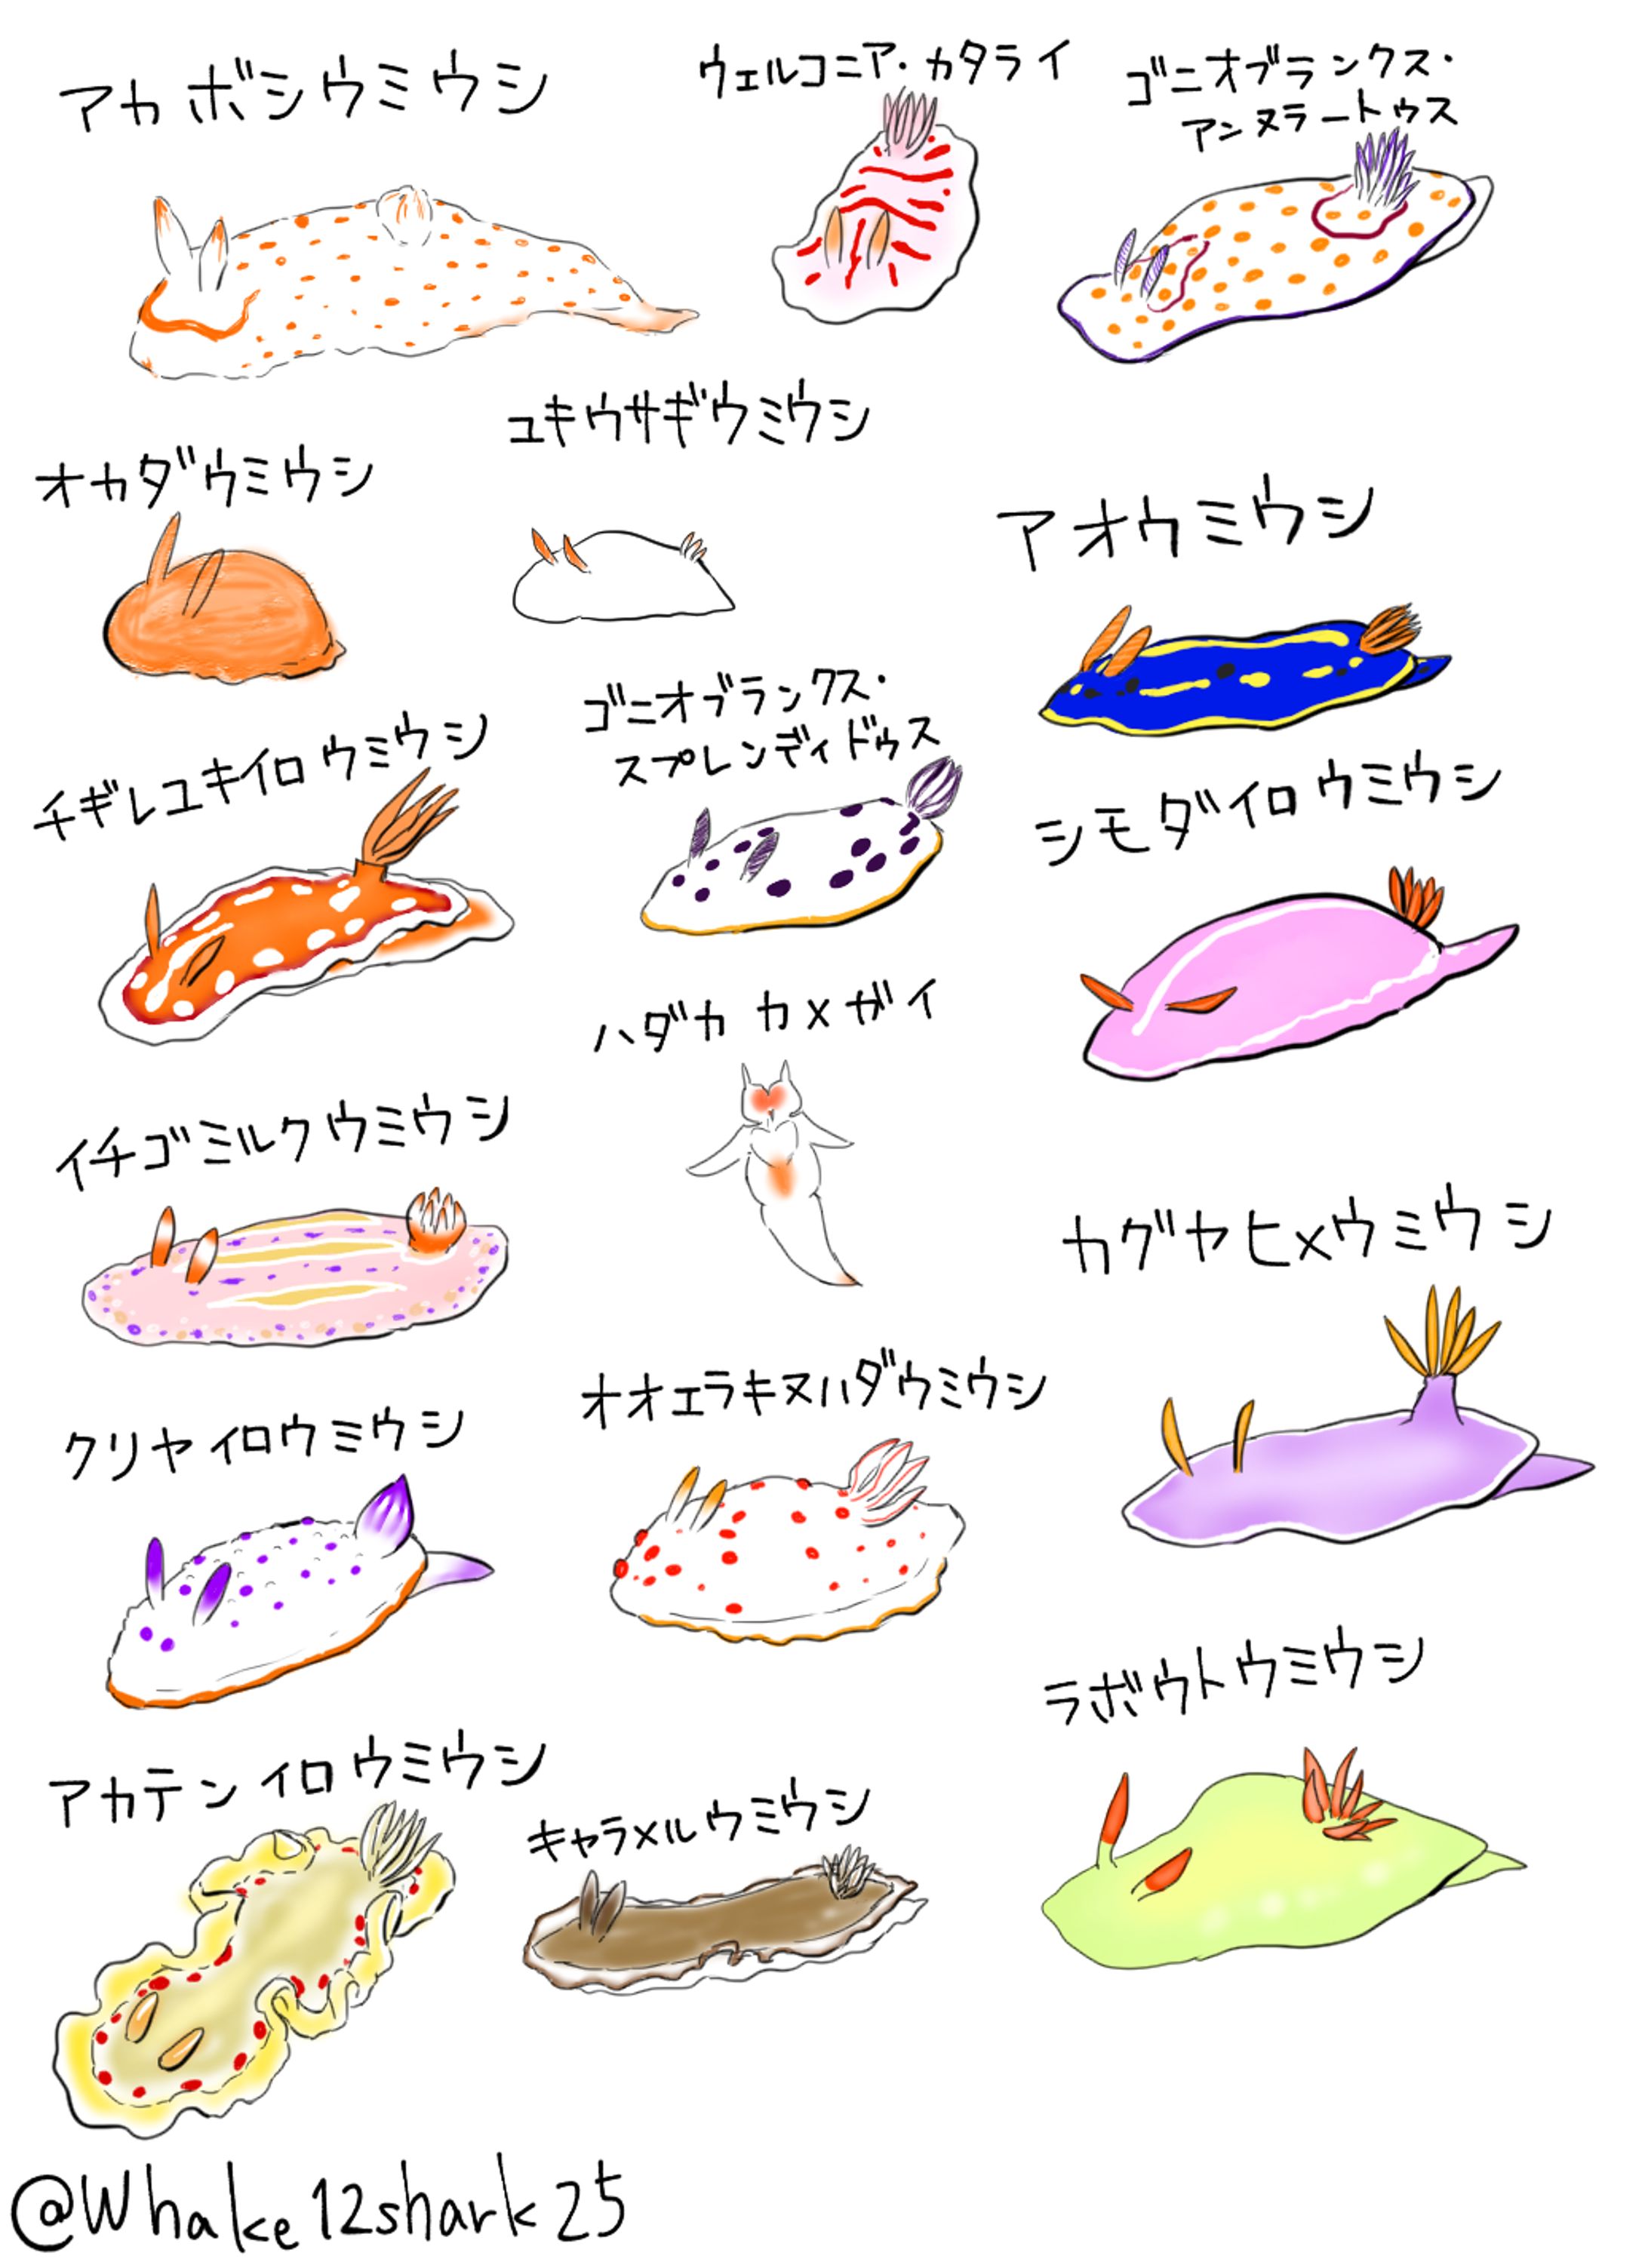 アカボシウミウシ
ウェルコニア・カタライ
ゴニオブランクス・
アンヌラートゥス
オカダウミウシ
ユキウサギウミウシ
アオウミウシ
チギレユキイロウミウシ
ゴニオブランクス・
スプレンディドゥス
シモダイロウミウシ
ハダカカメガイ
イチゴミルクウミウシ
カグヤヒメウミウシ
クリヤイロウミウシ
オオエラキヌハダウミウシ
ラボウトウミウシ
アカテンイロウミウシ
キャラメルウミウシ
@Whake12shark25